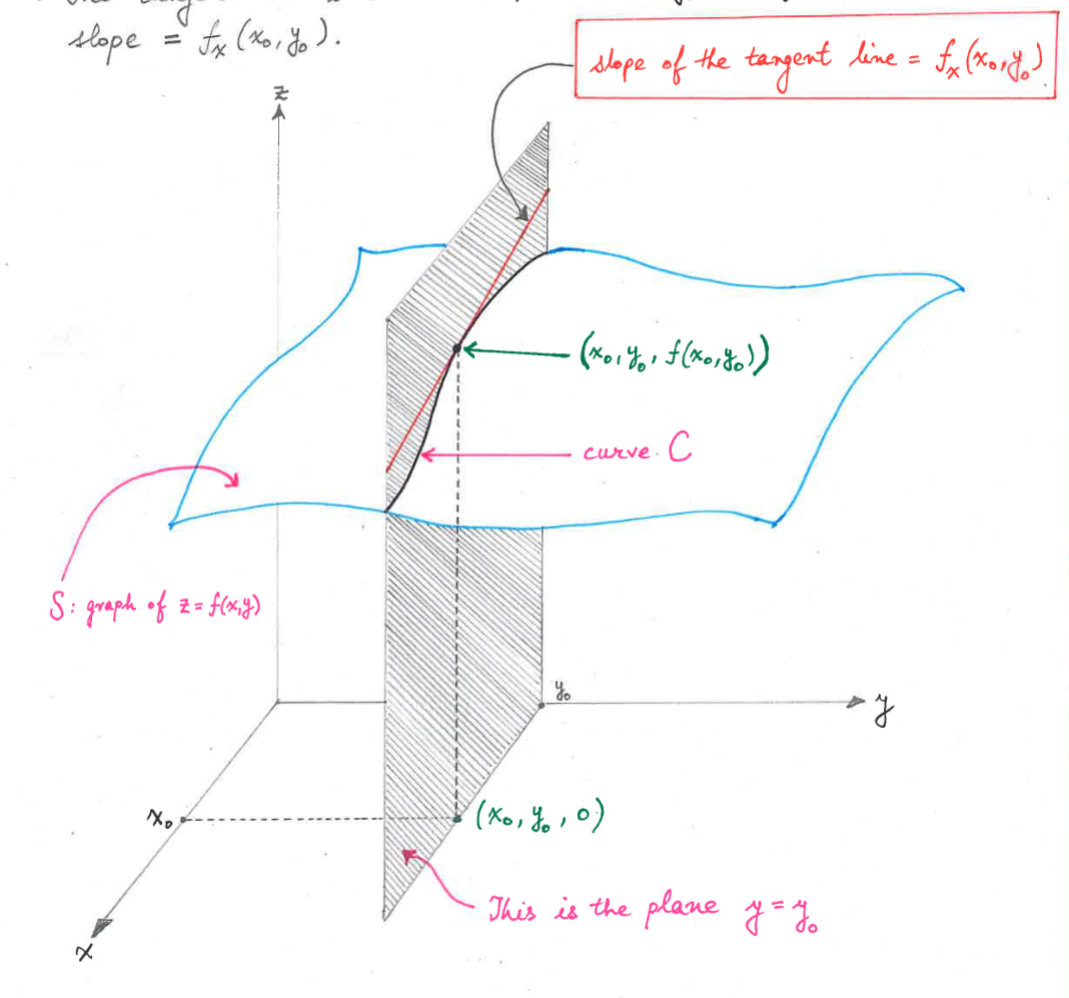 slope = fₓ(x₀, y₀).
slope of the tangent line = fₓ(x₀, y₀)
z
(x₀, y₀, f(x₀, y₀))
curve C
S: graph of z = f(x,y)
y₀
y
x₀
(x₀, y₀, 0)
This is the plane y = y₀
x